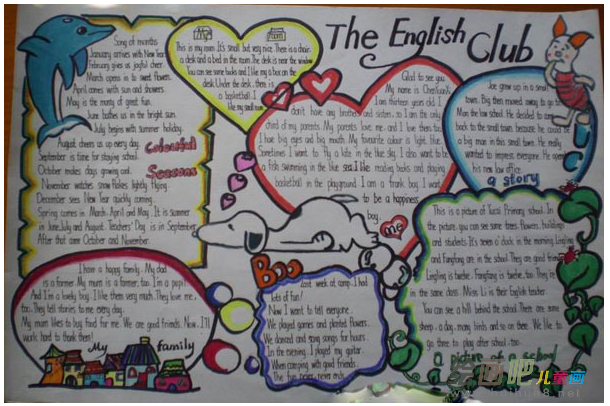 The English Club
Song of months
January arrives with New Year
February gives us joyful cheer
March opens in to sweet flowers.
April comes with sun and showers.
May is the munty of great fun.
June bathes us in the bright sun.
July begins with summer holiday.
August cheers us up every day.
September is time for staying school.
October makes days growing cool.
November watches snow flakes lightly flying.
December sees New Year quickly coming.
Spring comes in March. April and May. It is summer
in June, July and August. Teachers' Day is in September.
After that come October and November.
Colourful
Seasons
My room
This is my room. It's small but very nice. There is a chair,
a desk and a bed in the room. The desk is near the window.
You can see some books and I like my box on the
desk. Under the desk, there is
a basketball. I
like my small room.
Glad to see you.
My name is
I am thirteen years old. I
don't have any brothers and sisters, so I am the only
child of my parents. My parents love me, and I love them too.
I have big eyes and big mouth. My favourite colour is light blue.
Sometimes I want to fly a kite in the blue sky. I also want to be
a fish swimming in the blue sea. I like reading books and playing
basketball in the playground. I am a frank boy. I want
to be a happiness
boy.
me
Joe grew up in a small
town. Big then moved away to go to
Man the law school. He decided to come
back to the small town, because he could be
a big man in this small town. He really
wanted to impress everyone. He opened
his new law office.
a story
I have a happy family. My dad
is a farmer. My mum is a farmer, too. I'm a pupil
And I'm a lovely boy. I like them very much. They love me,
too. They tell stories to me every day.
My mum likes to buy food for me. We are good friends. Now, I'll
work hard to thank them!
My family
Boo
Last week at camp, I had
lots of fun!
Now I want to tell everyone.
We played games and planted flowers.
We danced and sang songs for hours.
In the evening, I played my guitar.
When camping with good friends.
The fun never, never ends.
This is a picture of Yucai Primary school. In
the picture, you can see some trees, flowers, buildings
and students. It's seven o'clock in the morning. Lingling
and Fangfang are in the school. They are good friends.
Lingling is twelve. Fangfang is twelve, too. They're
in the same class. Miss Li is their English teacher.
You can see a hill behind the school. There are some
sheep, a dog, many birds and so on there. We like to
go there to play after school, too.
a picture of a school
绘画吧 儿童画